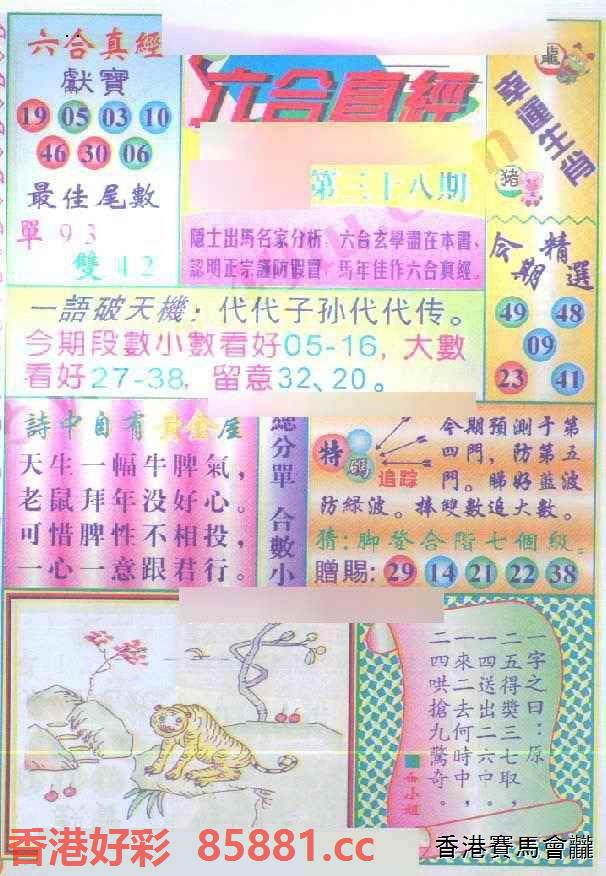 六合真經
獻寶
19 05 03 10
46 30 06
最佳尾數
單 9 3
雙 4 2
六合真經
第三十八期
隱士出馬名家分析,六合玄學盡在本書,
認明正宗謹防假冒,馬年佳作六合真經。
龍
幸運生肖
猪
今期精選
49 48
09
23 41
一語破天機:代代子孙代代传。
今期段數小數看好05-16,大數
看好27-38,留意32、20。
詩中自有黃金屋
天生一幅牛脾氣,
老鼠拜年没好心。
可惜脾性不相投,
一心一意跟君行。
總分單 合數小
特碼
追踪
今期預測于第
四門,防第五
門。睇好藍波
防緑波。捧雙數追大數。
猜:脚登台階七個級。
贈賜:29 14 21 22 38
一字之曰:原
二五得獎三七取,
一四送出二六口。
一來二去何時中,
二四哄搶九驚奇。
香港好彩 85881.cc
香港賽馬會